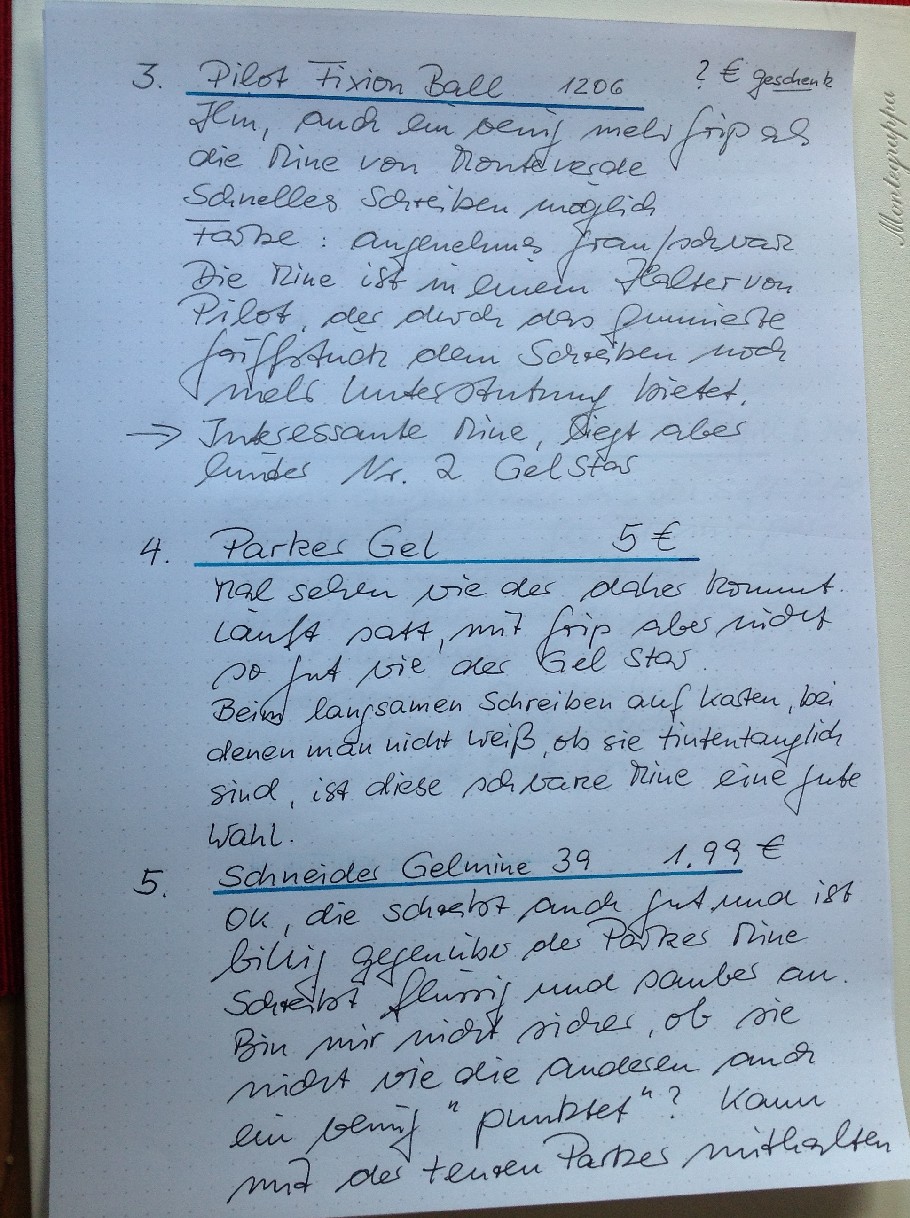 3. Pilot Fixion Ball 1206 ? € geschenk
Hm, auch ein wenig mehr Grip als
die Mine von Monteverde
Schnelles Schreiben möglich
Farbe : angenehmes grau/schwarz
Die Mine ist in einem Halter von
Pilot, der durch das gummierte
Griffstück dem Schreiben noch
mehr Unterstützung bietet.
→ Interessante Mine, liegt aber
hinter Nr. 2 GelStar
4. Parker Gel 5 €
Mal sehen wie der daher kommt.
Läuft satt, mit Grip aber nicht
so gut wie der Gel Star.
Beim langsamen Schreiben auf Karten, bei
denen man nicht weiß, ob sie tintentauglich
sind, ist diese schwarze Mine eine gute
Wahl.
5. Schneider Gelmine 39 1.99 €
Ok, die schreibt auch gut und ist
billig gegenüber der Parker Mine
Schreibt flüssig und sauber an.
Bin mir nicht sicher, ob sie
nicht wie die anderen auch
ein wenig "punktet"? Kann
mit der teuren Parker mithalten
Montegrappa